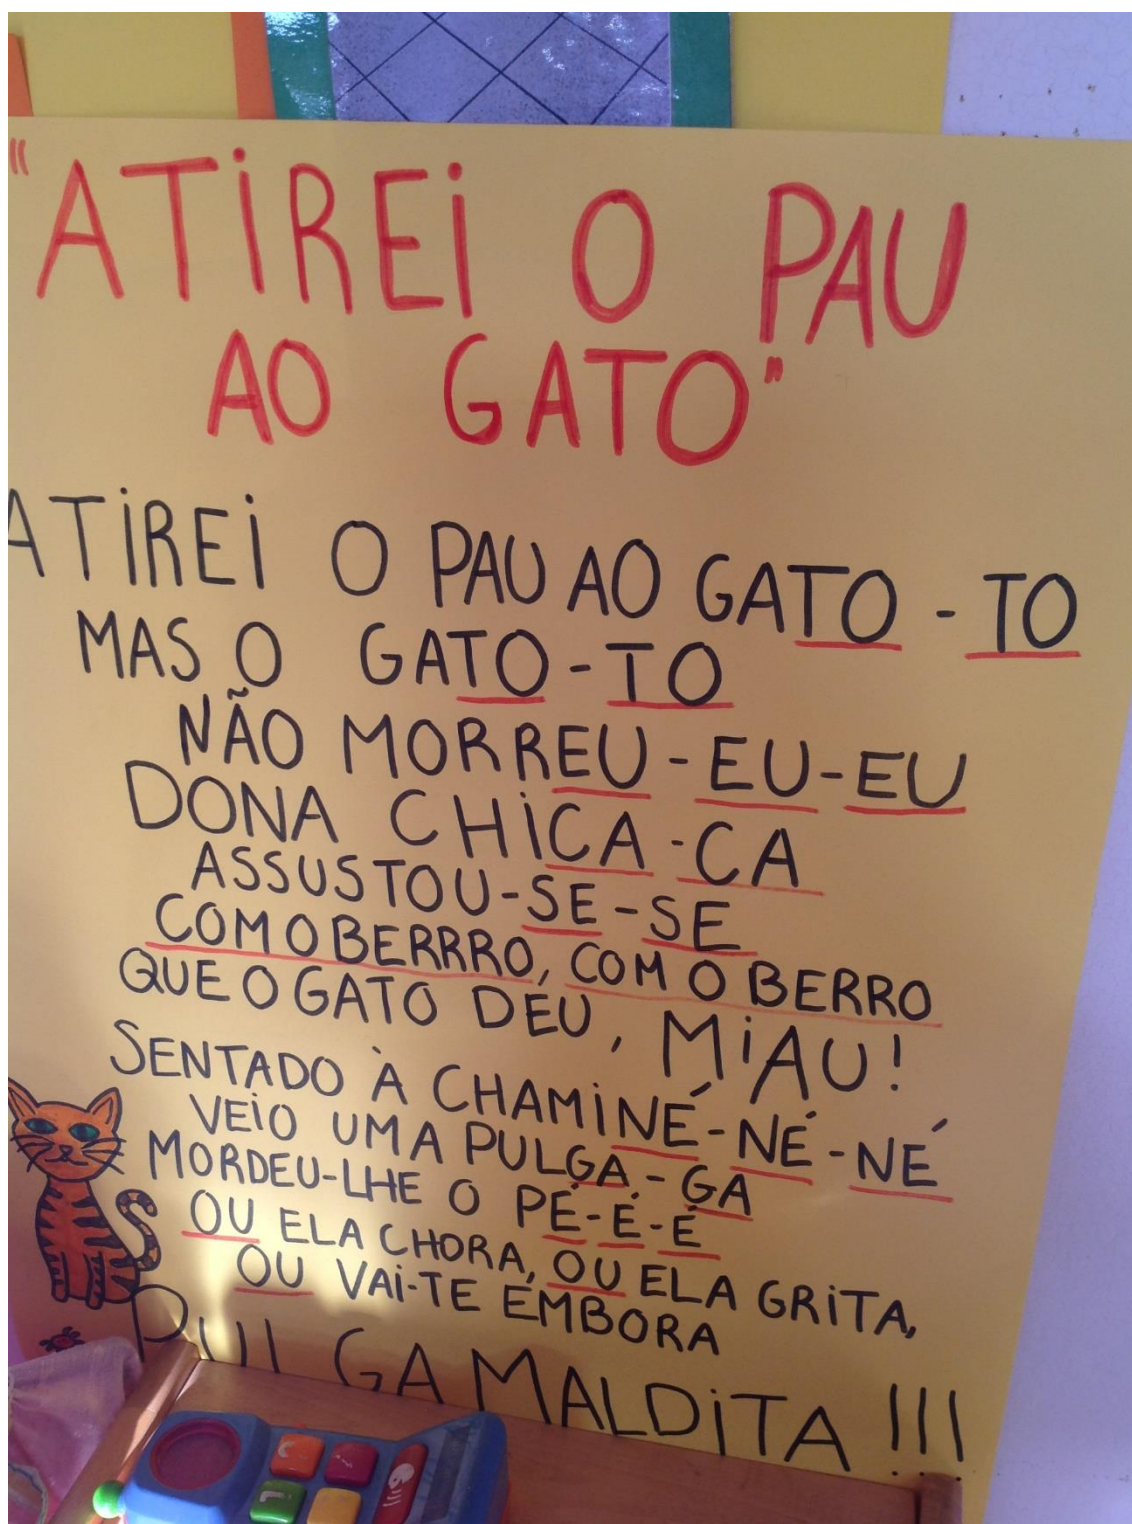 "ATiREi O PAU
AO GATO"
ATiREi O PAU AO GATO - TO
MAS O GATO - TO
NÃO MORREU - EU - EU
DONA CHiCA - CA
ASSUSTOU-SE - SE
COM O BERRRO, COM O BERRO
QUE O GATO DEU, MiAU!
SENTADO À CHAMiNÉ - NÉ - NÉ
VEiO UMA PULGA - GA
MORDEU-LHE O PÉ - É - É
OU ELA CHORA, OU ELA GRiTA,
OU VAi-TE EMBORA
PULGA MALDiTA !!!